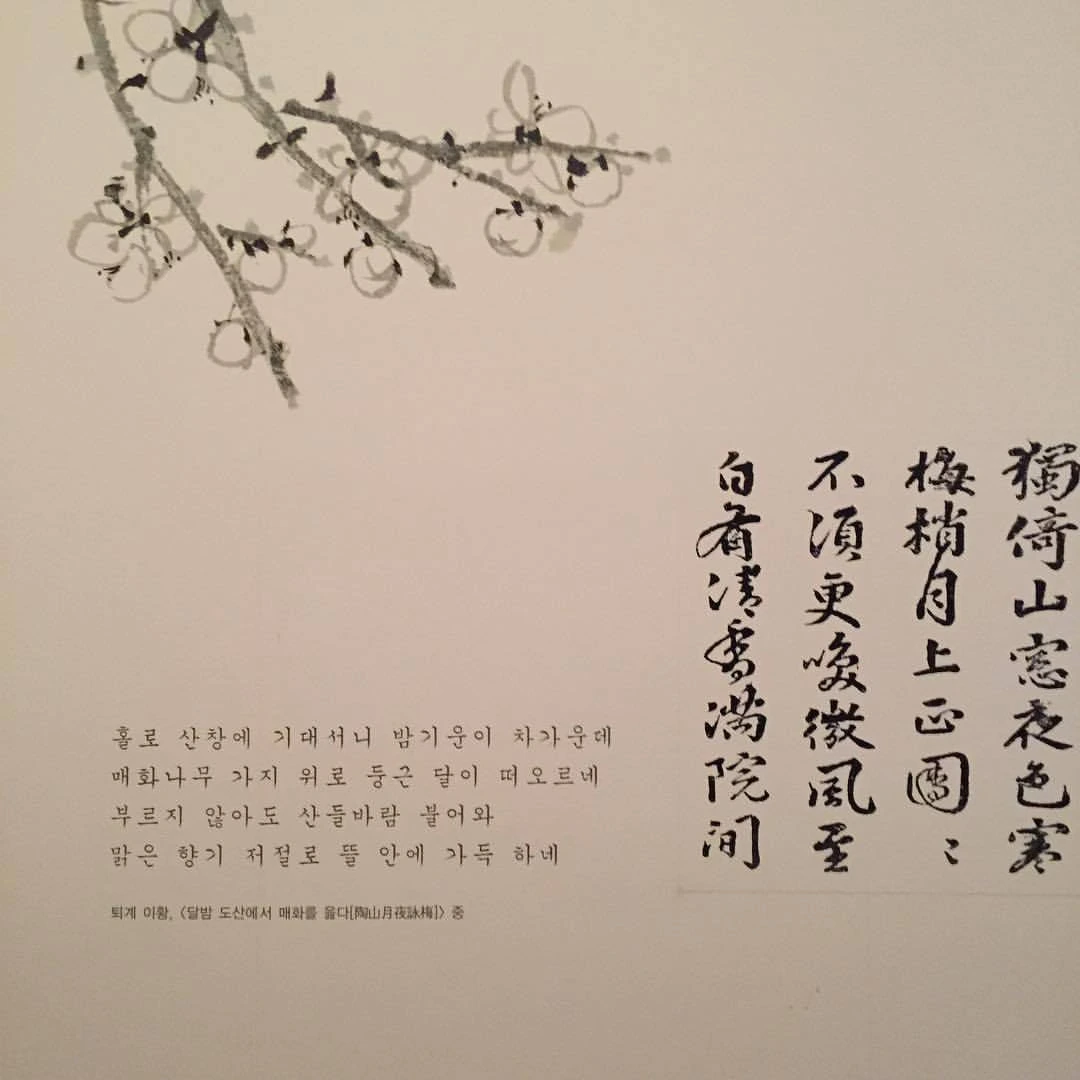 獨倚山窓夜色寒
梅梢月上正團〻
不須更喚微風至
自有清香滿院間
홀로 산창에 기대서니 밤기운이 차가운데
매화나무 가지 위로 둥근 달이 떠오르네
부르지 않아도 산들바람 불어와
맑은 향기 저절로 뜰 안에 가득 하네
퇴계 이황, 〈달밤 도산에서 매화를 읊다[陶山月夜詠梅]〉 중